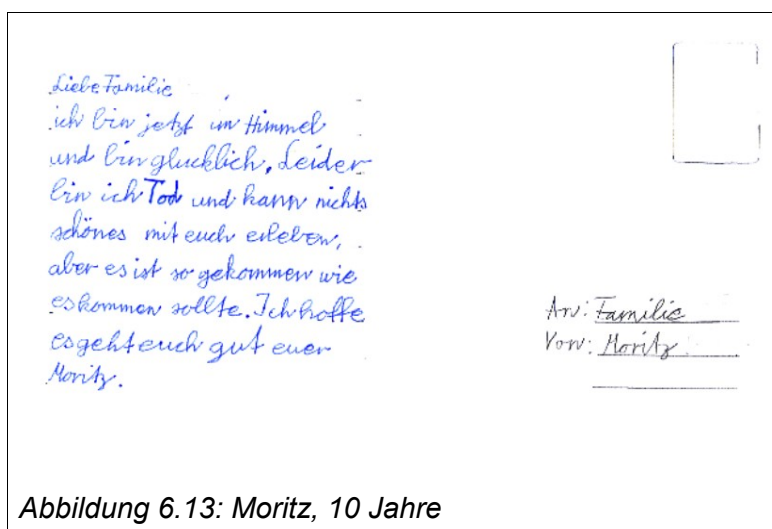 Liebe Familie
ich bin jetzt im Himmel
und bin glucklich. Leider
bin ich Tod und kann nichts
schönes mit euch erleben,
aber es ist so gekommen wie
es kommen sollte. Ich hoffe
es geht euch gut euer
Moritz.
An: Familie
Von: Moritz
Abbildung 6.13: Moritz, 10 Jahre